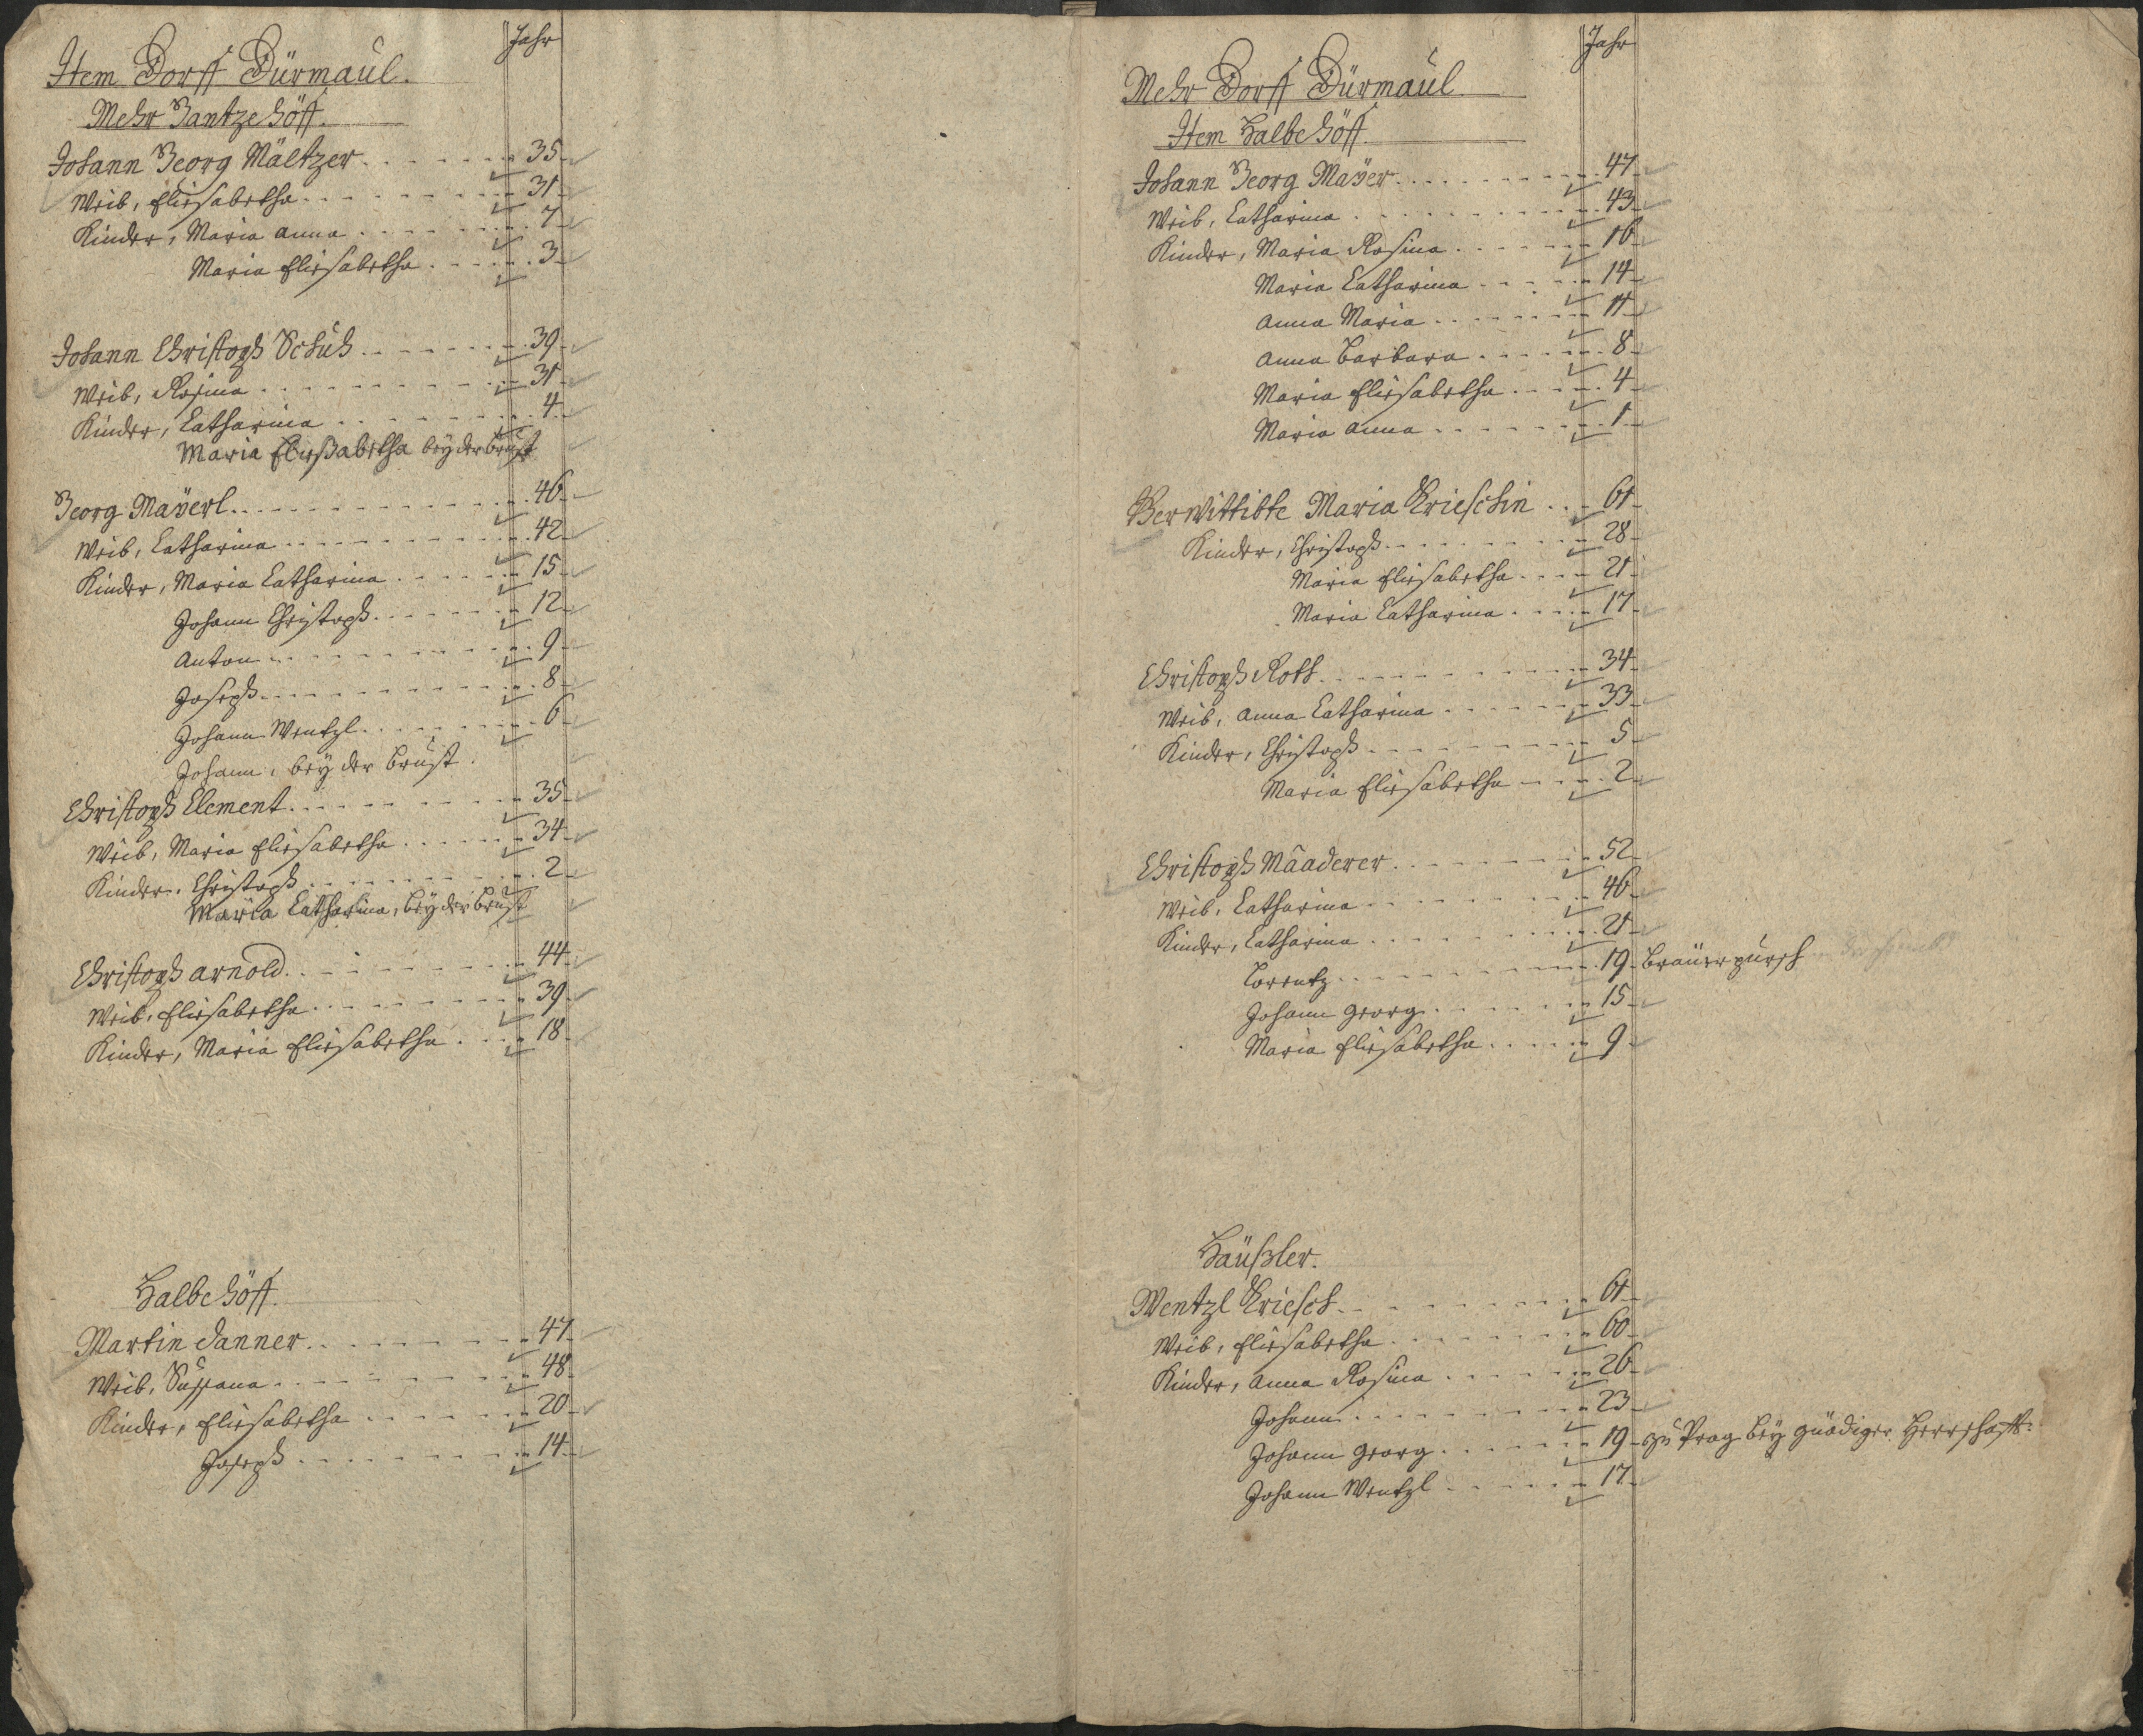 Jahr
Item Dorff Dürmaul.
Mehr Gantze Höff.
Johann Georg Mältzer 35
Weib, Eliesabetha 31
Kinder, Maria Anna 7
Maria Eliesabetha 3
Johann Christoph Schuh 39
Weib, Rosina 31
Kinder, Catharina 4
Maria Eließabetha bey der Brust
Georg Maÿerl 46
Weib, Catharina 42
Kinder, Maria Catharina 15
Johann Christoph 12
Anton 9
Joseph 8
Johann Wentzl 6
Johann, bey der Brust.
Christoph Clement 35
Weib, Maria Eliesabetha 34
Kinder, Christoph 2
Maria Catharina, bey der Brust
Christoph Arnold 44
Weib, Eliesabetha 39
Kinder, Maria Eliesabetha 18
Halbe Höff.
Martin Danner 47
Weib, Sussana 48
Kinder, Eliesabetha 20
Joseph 14
Jahr
Mehr Dorff Dürmaul
Item Halbe Höff.
Johann Georg Maÿer 47
Weib, Catharina 43
Kinder, Maria Rosina 16
Maria Catharina 14
Anna Maria 11
Anna Barbara 8
Maria Eliesabetha 4
Maria Anna 1
Verwittibte Maria Krieschin 61
Kinder, Christoph 28
Maria Eliesabetha 21
Maria Catharina 17
Christoph Roth 34
Weib, Anna Catharina 33
Kinder, Christoph 5
Maria Eliesabetha 2
Christoph Maaderer 52
Weib, Catharina 46
Kinder, Catharina 21
Lorentz 19 Bräuerpursch
Johann Georg 15
Maria Eliesabetha 9
Häußler.
Wentzl Kriesch 61
Weib, Eliesabetha 60
Kinder, Anna Rosina 26
Johann 23
Johann Georg 19 zu Prag bey gnädiger Herrschafft
Johann Wentzl 17